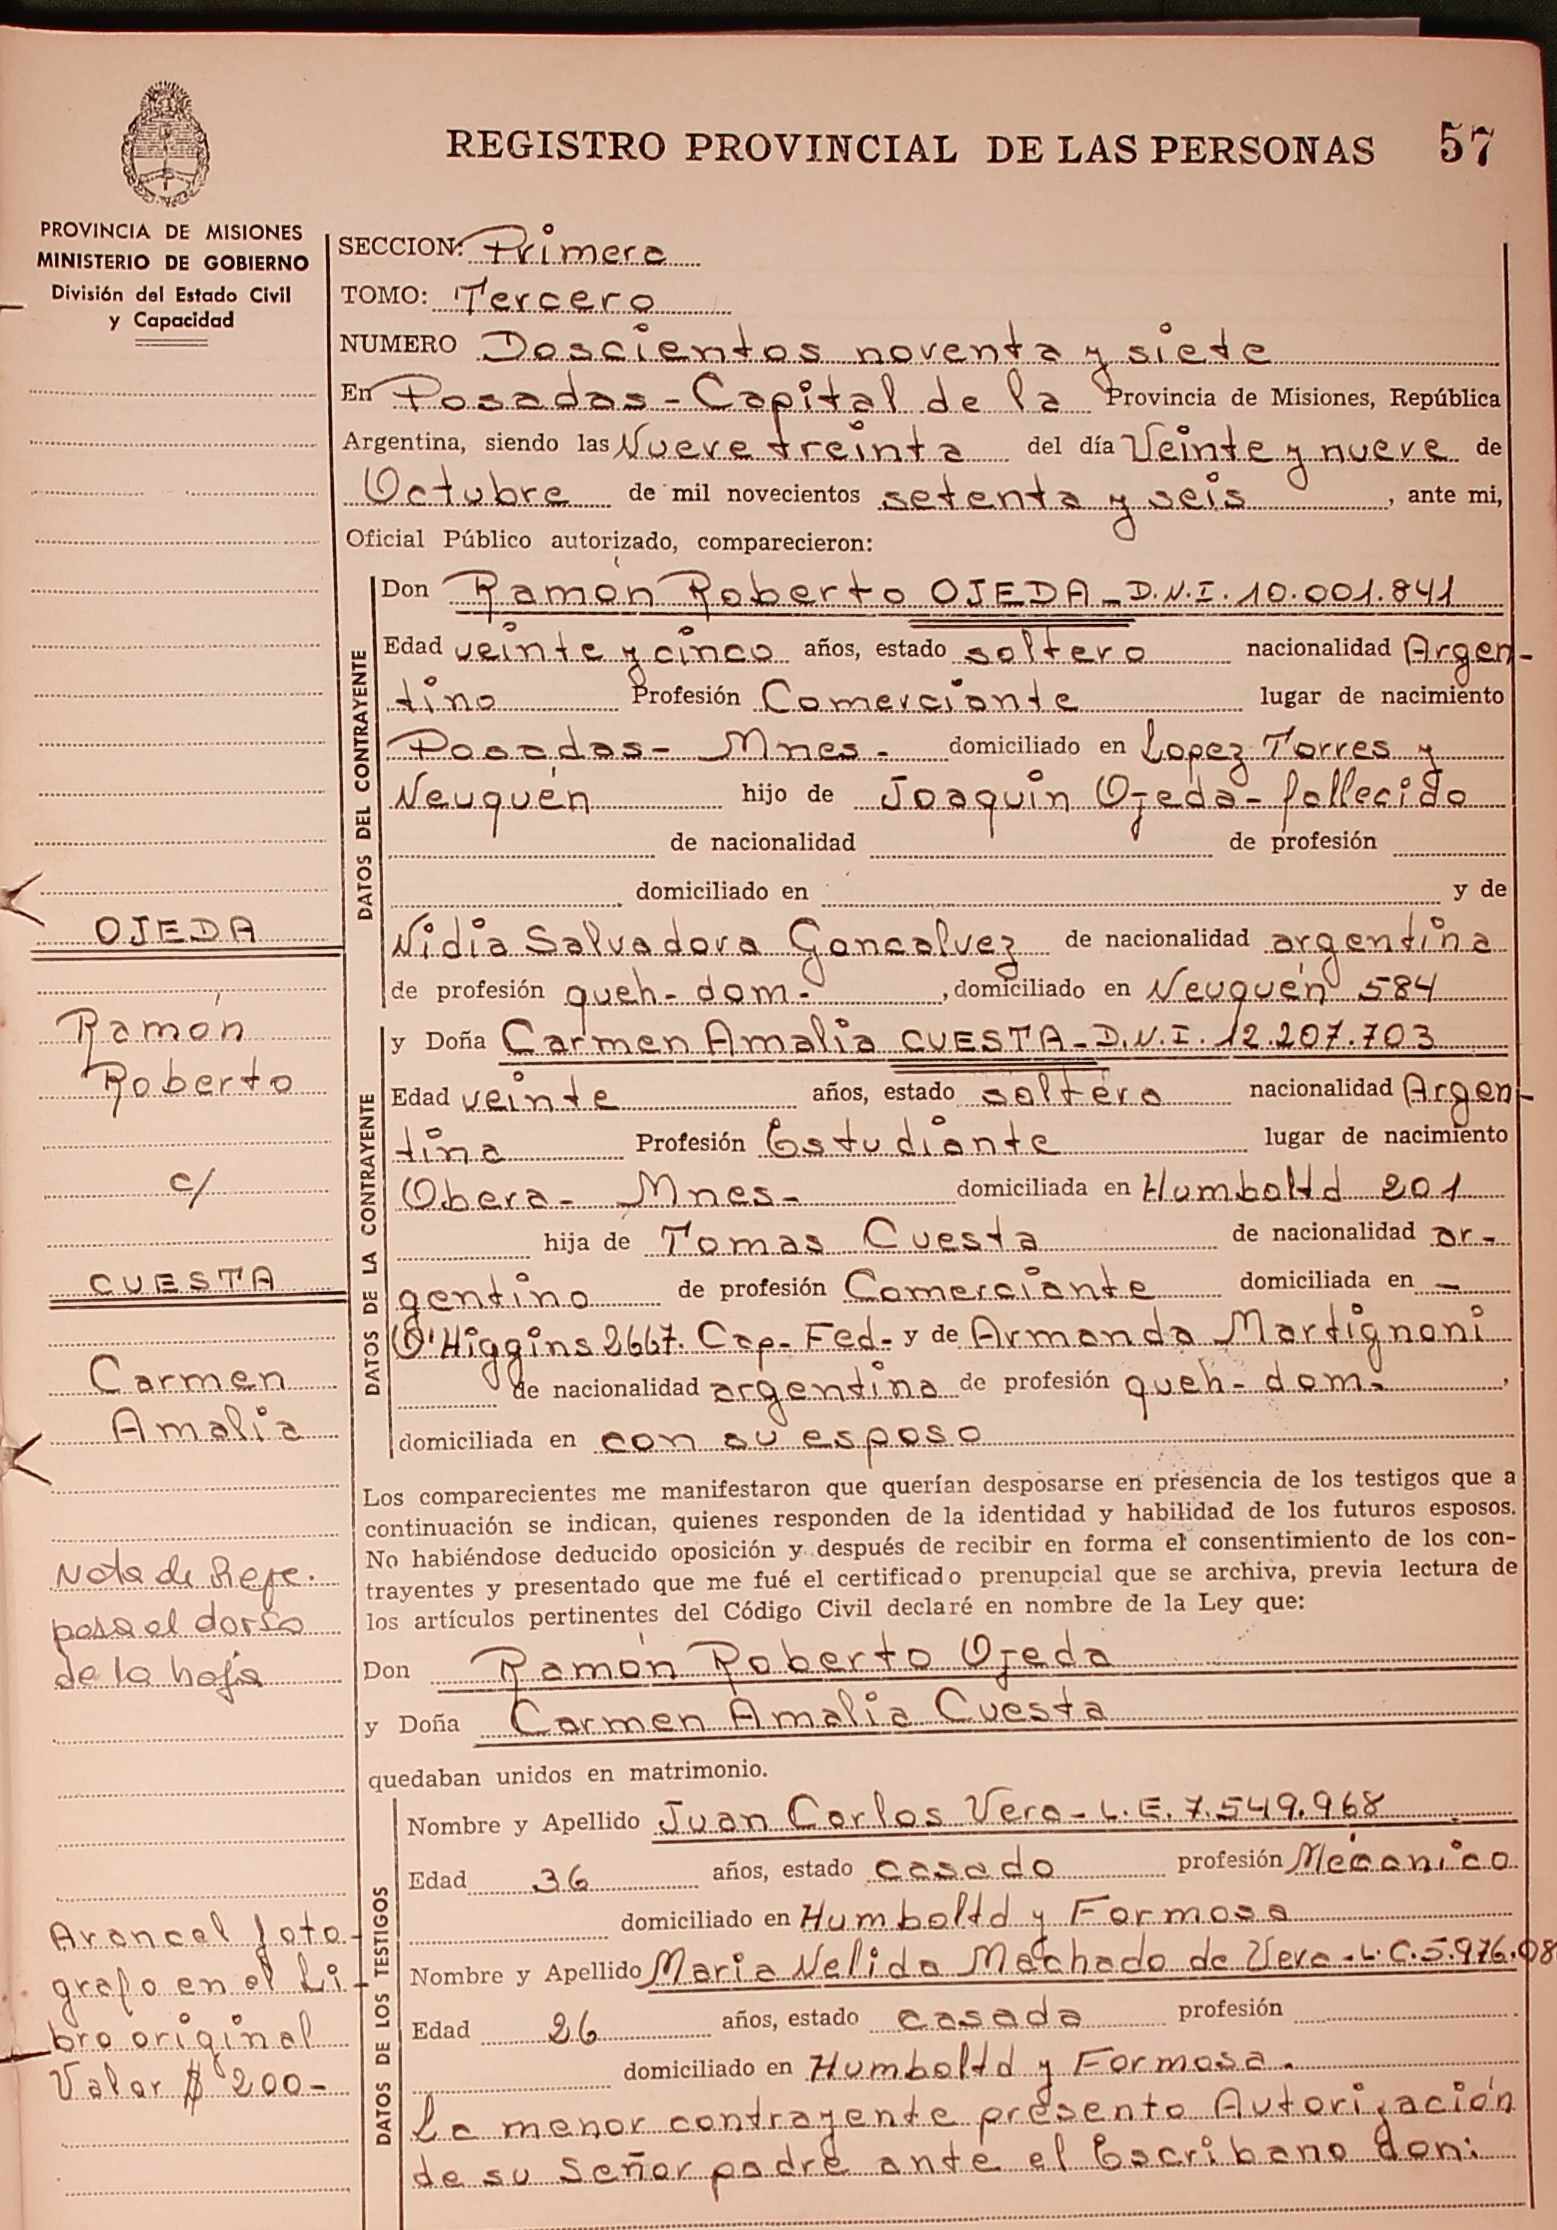 REGISTRO PROVINCIAL DE LAS PERSONAS 57
PROVINCIA DE MISIONES
MINISTERIO DE GOBIERNO
División del Estado Civil
y Capacidad
SECCION: Primera
TOMO: Tercero
NUMERO Doscientos noventa y siete
En Posadas - Capital de la Provincia de Misiones, República
Argentina, siendo las Nueve treinta del día Veinte y nueve de
Octubre de mil novecientos setenta y seis, ante mi,
Oficial Público autorizado, comparecieron:
DATOS DEL CONTRAYENTE
Don Ramón Roberto OJEDA - D.N.I. 10.001.841
Edad veinte y cinco años, estado soltero nacionalidad Argen-
tino Profesión Comerciante lugar de nacimiento
Posadas - Mnes - domiciliado en Lopez Torres y
Neuquén hijo de Joaquin Ojeda - fallecido
de nacionalidad de profesión
domiciliado en y de
Nidia Salvadora Goncalvez de nacionalidad argentina
de profesión queh - dom -, domiciliado en Neuquén 584
DATOS DE LA CONTRAYENTE
y Doña Carmen Amalia CUESTA - D.N.I. 12.207.703
Edad veinte años, estado soltera nacionalidad Argen-
tina Profesión Estudiante lugar de nacimiento
Obera - Mnes - domiciliada en Humboltd 201
hija de Tomas Cuesta de nacionalidad ar-
gentino de profesión Comerciante domiciliada en -
O'Higgins 2667. Cap - Fed - y de Armanda Martignoni
de nacionalidad argentina de profesión queh - dom -,
domiciliada en con su esposo
Los comparecientes me manifestaron que querían desposarse en presencia de los testigos que a
continuación se indican, quienes responden de la identidad y habilidad de los futuros esposos.
No habiéndose deducido oposición y después de recibir en forma el consentimiento de los con-
trayentes y presentado que me fué el certificado prenupcial que se archiva, previa lectura de
los artículos pertinentes del Código Civil declaré en nombre de la Ley que:
Don Ramón Roberto Ojeda
y Doña Carmen Amalia Cuesta
quedaban unidos en matrimonio.
DATOS DE LOS TESTIGOS
Nombre y Apellido Juan Carlos Vera - L.E. 7.549.968
Edad 36 años, estado casado profesión Mecánico
domiciliado en Humboltd y Formosa
Nombre y Apellido Maria Nelida Machado de Vera - L.C. 5.976.08
Edad 26 años, estado casada profesión
domiciliado en Humboltd y Formosa.
La menor contrayente presento Autorización
de su Señor padre ante el Escribano don:
OJEDA
Ramón
Roberto
c/
CUESTA
Carmen
Amalia
Nota de Refe.
pasa al dorso
de la hoja
Arancel foto-
grafo en el Li-
bro original
Valor $ 200-